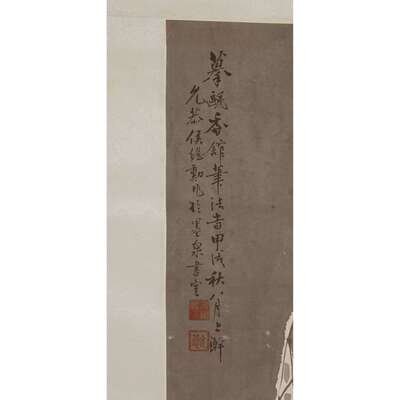 摹甌香館筆法當甲戌秋八月上澣
允恭侯繼勳作於墨泉書室